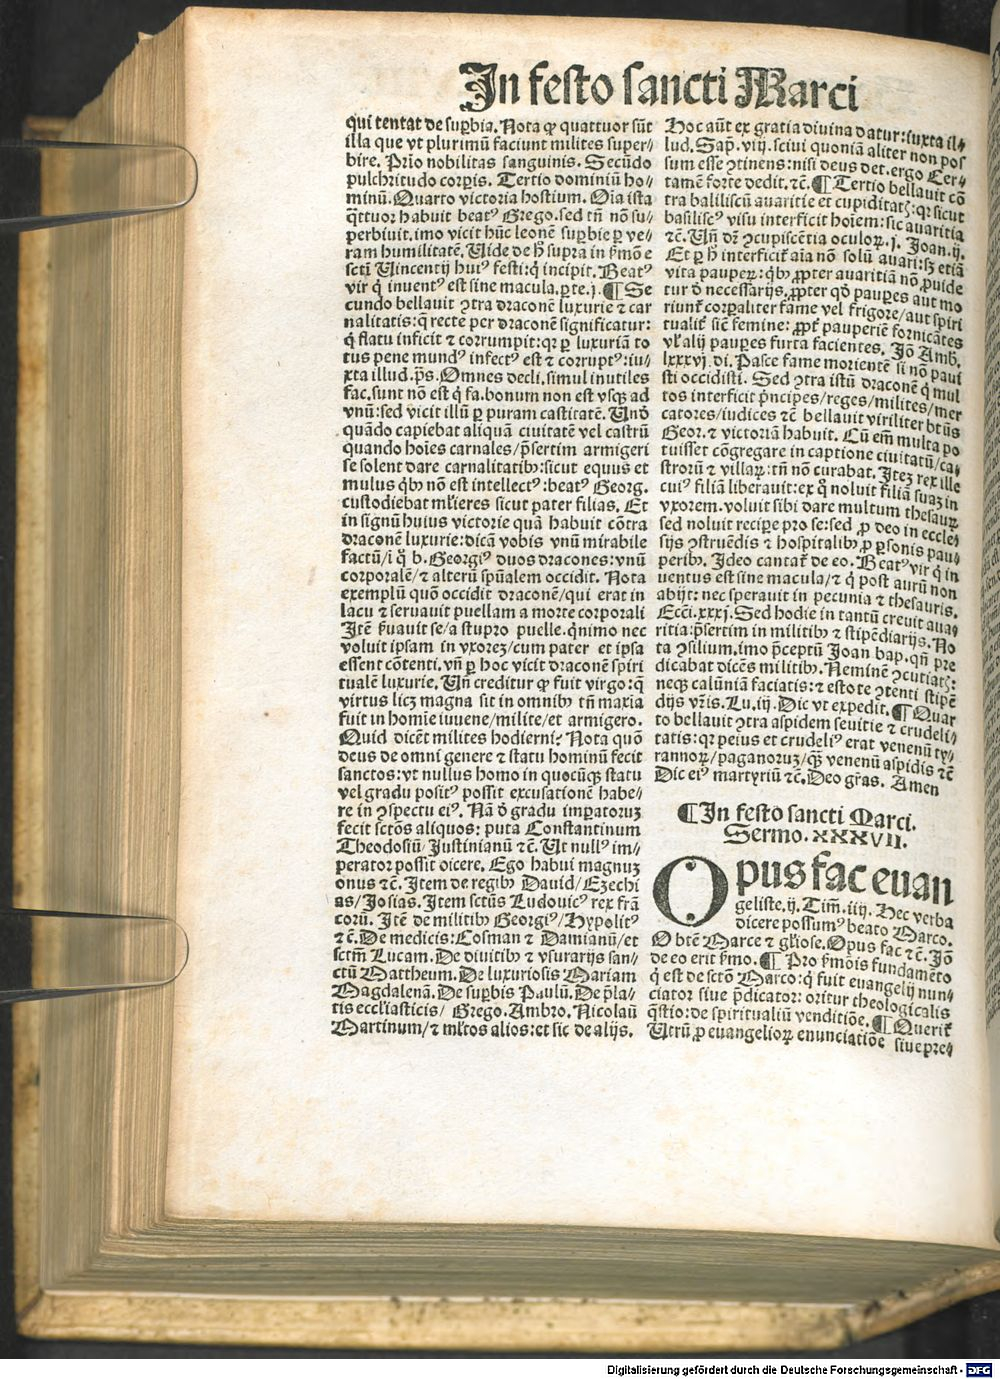 In festo sancti Marci
qui tentat de suꝑbia. Nota ꝙ quattuor sūt
illa que vt plurimū faciunt milites super⸗
bire. Prīo nobilitas sanguinis. Secūdo
pulchritudo corꝑis. Tertio dominiū ho⸗
minū. Quarto victoria hostium. Oīa ista
q̄ttuor habuit beatꝰ Grego. sed tn̄ nō su⸗
ꝑerbiuit. imo vicit hūc leonē suꝑbie ꝑ ve⸗
ram humilitatē. Uide de h̄ supra in ẜmōe
sctī Uincentij huiꝰ festi: q̄ incipit. Beatꝰ
vir q̄ inuentꝰ est sine macula. ꝑte. j. ¶ Se
cundo bellauit ꝯtra draconē luxurie ⁊ car
nalitatis: q̄ recte per draconē significatur:
q̄ flatu inficit ⁊ corrumpit: qꝛ ꝑ luxuriā to
tus pene mundꝰ infectꝰ est ⁊ corruptꝰ: iu⸗
xta illud. p̄s. Omnes decli. simul inutiles
fac. sunt nō est q̄ fa. bonum non est vsqꝫ ad
vnū: sed vicit illū ꝑ puram castitatē. Unō
quādo capiebat aliquā ciuitatē vel castrū
quando hoīes carnales/ p̄sertim armigeri
se solent dare carnalitatibꝰ: sicut equus et
mulus q̄bꝰ nō est intellectꝰ: beatꝰ Georg.
custodiebat ml̄ieres sicut pater filias. Et
in signū huius victorie quā habuit cōtra
draconē luxurie: dicā vobis vnū mirabile
factū/ i q̊ b. Georgiꝰ duos dracones: vnū
corporalē/ ⁊ alterū spūalem occidit. Nota
exemplū quō occidit draconē/ qui erat in
lacu ⁊ seruauit puellam a morte corporali
Itē ẜuauit se/ a stupro puelle. q̄nimo nec
voluit ipsam in vxoreꝫ/ cum pater et ipsa
essent cōtenti. vn̄ ꝑ hoc vicit draconē spiri
tualē luxurie. Un̄ creditur ꝙ fuit virgo: q̄
virtus licꝫ magna sit in omnibꝰ tn̄ maxīa
fuit in homīe iuuene/ milite/ et armigero.
Quid dicēt milites hodierni? Nota quō
deus de omni genere ⁊ statu hominū fecit
sanctos: vt nullus homo in quocūqꝫ statu
vel gradu positꝰ possit excusationē habe⸗
re in ꝯspectu eiꝰ. Nā d̄ gradu imꝑatoruꝫ
fecit sctōs aliquos: puta Constantinum
Theodosiū/ Justinianū ⁊c̄. Ut nullꝰ im⸗
perator possit dicere. Ego habui magnuꝫ
onus ⁊c̄. Item de regibꝰ Dauid/ Ezechi
as/ Josias. Item sctūs Ludouicꝰ rex frā
corū. Itē de militibꝰ Georgiꝰ/ Hypolitꝰ
⁊c̄. De medicis: Cosman ⁊ Damianū/ et
sctm̄ Lucam. De diuitibꝰ ⁊ vsurarijs san⸗
ctū Mattheum. De luxuriosis Mariam
Magdalenā. De suꝑbis Paulū. De p̄la⸗
tis eccl̄iasticis/ Grego. Ambro. Nicolaū
Martinum/ ⁊ ml̄tos alios: et sic de alijs.
Hoc aūt ex gratia diuina datur: iuxta il⸗
lud. Sap̄. viij. sciui quoniā aliter non pos
sum esse ꝯtinens: nisi deus det. ergo Cer⸗
tamē forte dedit. ⁊c̄. ¶ Tertio bellauit cō
tra baliliscū auaritie et cupiditatꝭ: qꝛ sicut
basiliscꝰ visu interficit hoīem: sic auaritia
⁊c̄. Un̄ dr̄ ꝯcupiscētia oculoꝝ. j. Joan. ij.
Et ꝑ h̄ interficit̄ aīa nō solū auari: sꝫ etiā
vita pauperꝝ: q̄bꝰ ꝓpter auaritiā nō ꝓuide
tur d̄ necessarijs. ꝓpter qd̄ pauꝑes aut mo
riunt̄ corꝑaliter fame vel frigore/ aut spiri
tualit̄ sic̄ femine: ꝓpt̄ pauperiē fornicātes
vl̄ alij pauꝑes furta facientes. Jō Amb.
lxxxvj. di. Pasce fame morientē si nō paui
sti occidisti. Sed ꝯtra istū draconē q̄ mul
tos interficit p̄ncipes/ reges/ milites/ mer
catores/ iudices ⁊c̄ bellauit viriliter btūs
Geor. ⁊ victoriā habuit. Cū em̄ multa po
tuisset cōgregare in captione ciuitatū/ ca⸗
stroꝝ ⁊ villaꝝ: tn̄ nō curabat. Iteꝫ rex ille
cuiꝰ filiā liberauit: ex q̊ noluit filiā suaꝫ in
vxorem. voluit sibi dare multum thesauꝝ
sed noluit reciꝑe pro se: sed ꝓ deo in eccle⸗
sijs ꝯstruēdis ⁊ hospitalibꝰ ꝓ ꝑsonis pau⸗
peribꝰ. Ideo cantat̄ de eo. Beatꝰ vir q̄ in
uentus est sine macula/ ⁊ q̄ post aurū non
abijt: nec sperauit in pecunia ⁊ thesauris.
Eccī. xxxj. Sed hodie in tantū creuit aua⸗
ritia: p̄sertim in militibꝰ ⁊ stipēdiarijs. No
ta ꝯsilium. imo p̄ceptū Joan bap. qn̄ pre
dicabat dicēs militibꝰ. Neminē ꝯcutiatꝭ:
neqꝫ calūniā faciatis: ⁊ estote ꝯtenti stipē
dijs vr̄is. Lu. iij. Dic vt expedit. ¶ Quar
to bellauit ꝯtra aspidem seuitie ⁊ crudeli⸗
tatis: qꝛ peius et crudeliꝰ erat venenū ty⸗
rannoꝝ/ paganoruꝫ/ qͣꝫ venenū aspidis ⁊c̄
Dic eiꝰ martyriū ⁊c̄. Deo gr̄as. Amen
¶ In festo sancti Marci.
Sermo. XXXVII.
Opus fac euan
geliste. ij. Tim̄. iiij. Hec verba
dicere possumꝰ beato Marco.
O btē Marce ⁊ gl̄iose. Opus fac ⁊c̄. Jō
de eo erit ẜmo. ¶ Pro ẜmōis fundamēto
q̄ est de sctō Marco: q̄ fuit euangelij nun⸗
ciator siue p̄dicator: oritur theologicalis
q̄stio: de spiritualiū venditiōe. ¶ Querit̄
Utrū ꝓ euangelioꝝ enunciatiōe siue pre⸗
Digitalisierung gefördert durch die Deutsche Forschungsgemeinschaft - DFG